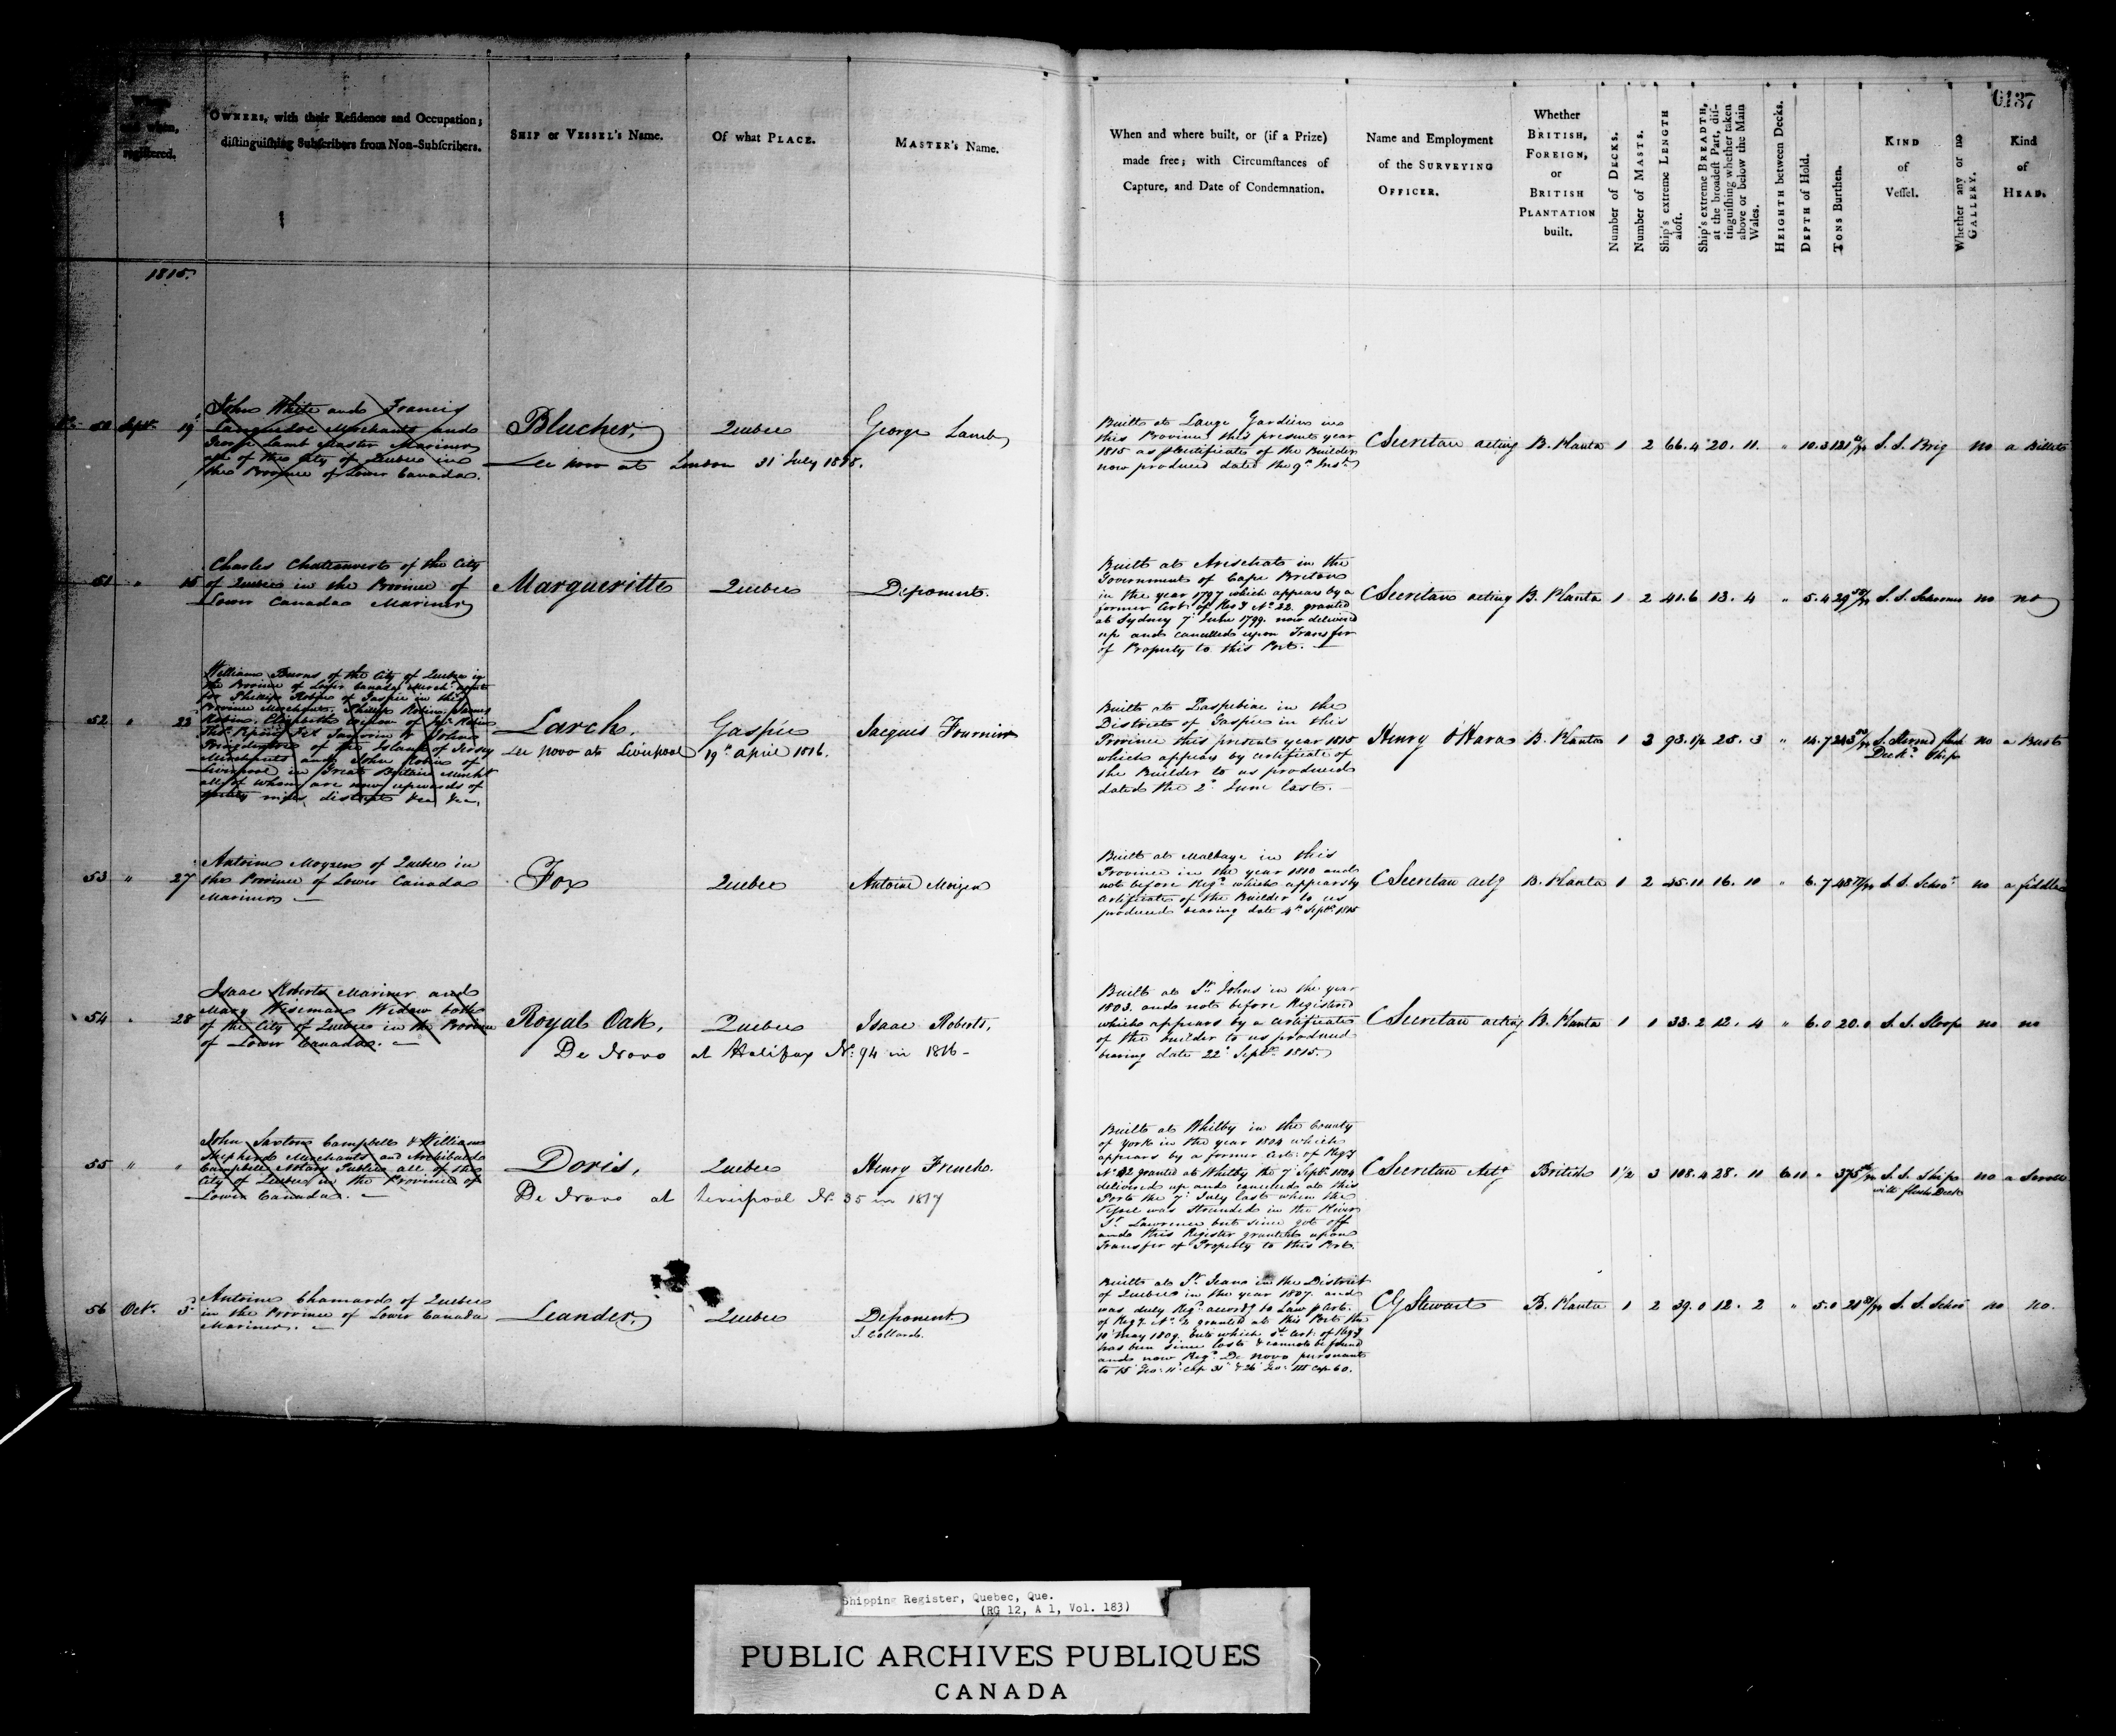 0137
and when,
registered.
OWNERS, with their Residence and Occupation;
distinguishing Subscribers from Non-Subscribers.
SHIP or VESSEL's Name.
Of what PLACE.
MASTER's Name.
When and where built, or (if a Prize)
made free; with Circumstances of
Capture, and Date of Condemnation.
Name and Employment
of the SURVEYING
OFFICER.
Whether
BRITISH,
FOREIGN,
or
BRITISH
PLANTATION
built.
Number of DECKS.
Number of MASTS.
Ship's extreme LENGTH
aloft.
Ship's extreme BREADTH,
at the broadest Part, dis-
tinguishing whether taken
above or below the Main
Wales.
HEIGHTH between Decks.
DEPTH of Hold.
TONS Burthen.
KIND
of
Vessel.
Whether any or no
GALLERY.
Kind
of
HEAD.
1815.
50 Sept. 19
John White and Francis
Languedoc Merchants and
George Lamb Master Mariner
all of the City of Quebec in
the Province of Lower Canada.
Blucher, Quebec George Lamb
De novo at London 31 July 1818.
Built at Lange Gardien in
this Province this present year
1815 as p Certificate of the Builder
now produced dated the 9th Inst.
C Secretan acting B. Planta 1 2 66.4 20. 11. " 10.3 121 S. S. Brig no a Billet
51 " 15
Charles Chateauvert of the City
of Quebec in the Province of
Lower Canada Mariner
Margueritte Quebec Deponent.
Built at Arischat in the
Government of Cape Breton
in the year 1797 which appears by a
former Cert. of Regy No. 22. granted
at Sydney 7 June 1799. now delivered
up and cancelled upon Transfer
of Property to this Port.
C Secretan acting B. Planta 1 2 41.6 13. 4 " 5.4 29 S. S. Schooner no no
52 " 23
William Burns of the City of Quebec in
the Province of Lower Canada Mercht agent
for Philip Robin of Gaspée in this
Province Merchant. Philip Robin. James
Robin. Elizabeth widow of Robin
of the Island of Jersey
Merchants and John Robin of
Liverpool in Great Britain Mercht
all of whom are now upwards of
twenty miles distant &ca &ca.
Larch, Gaspée Jacques Fournier
De novo at Liverpool 19th April 1816.
Built at Paspebiac in the
District of Gaspée in this
Province this present year 1815
which appears by certificate of
the Builder to us produced
dated the 2d June last.
Henry O'Hara B. Planta 1 3 93.8½ 25. 3 " 14.7 243 S. Sternd flush no a Bust
Deckd Ship
53 " 27
Antoine Moyzen of Quebec in
the Province of Lower Canada
Mariner
Fox Quebec Antoine Moizen
Built at Malbaye in this
Province in the year 1810 and
not before Regd which appears by
Certificate of the Builder to us
produced bearing date 4th Septr 1815
C Secretan actg B. Planta 1 2 45.11 16. 10 " 6.7 48 S. S. Schoor no a fiddle
54 " 28
Isaac Roberts Mariner and
Mary Wiseman Widow both
of the City of Quebec in the Province
of Lower Canada.
Royal Oak, Quebec Isaac Roberts,
De Novo at Halifax No. 94 in 1816
Built at St Johns in the year
1803. and not before Registered
which appears by a certificate
of the builder to us produced
bearing date 22d Septr 1815.
C Secretan acting B. Planta 1 1 33.2 12. 4 " 6.0 20.0 S. S. Sloop no no
55 " "
John Saxton Campbell & William
Shepherd Merchants and Archibald
Campbell Notary Public all of the
City of Quebec in the Province of
Lower Canada.
Doris, Quebec Henry French.
De Novo at Liverpool No. 35 in 1817
Built at Whitby in the County
of York in the year 1804 which
appears by a former Cert. of Regy
No 82 granted at Whitby the 7 Septr 1804
delivered up and canceled at this
Port the 7 July last when the
Vessel was stranded in the River
St Lawrence but since got off
and this Register granted upon
Transfer of Property to this Port.
C Secretan Actg British 1½ 3 108.4 28. 11 6.11 " 375 S. S. Ship no a Scroll
with flush Deck
56 Octr. 3d
Antoine Chamard of Quebec
in the Province of Lower Canada
Mariner.
Leander, Quebec Deponent.
J. Collard.
Built at St Jean in the District
of Quebec in the year 1807. and
was duly Regd accordg to Law p Cert.
of Regy. No. 2 granted at this Port the
10 May 1809. but which sd. Cert. of Regy
has been since lost & cannot be found
and now Regd De Novo pursuant
to 15 Geo: 11 cap 31 & 26 Geo: III Cap 60.
CG Stewart B. Planta 1 2 39.0 12. 2 " 5.0 21 S. S. Schoo no no.
Shipping Register, Quebec, Que.
(RG 12, A 1, Vol. 183)
PUBLIC ARCHIVES PUBLIQUES
CANADA